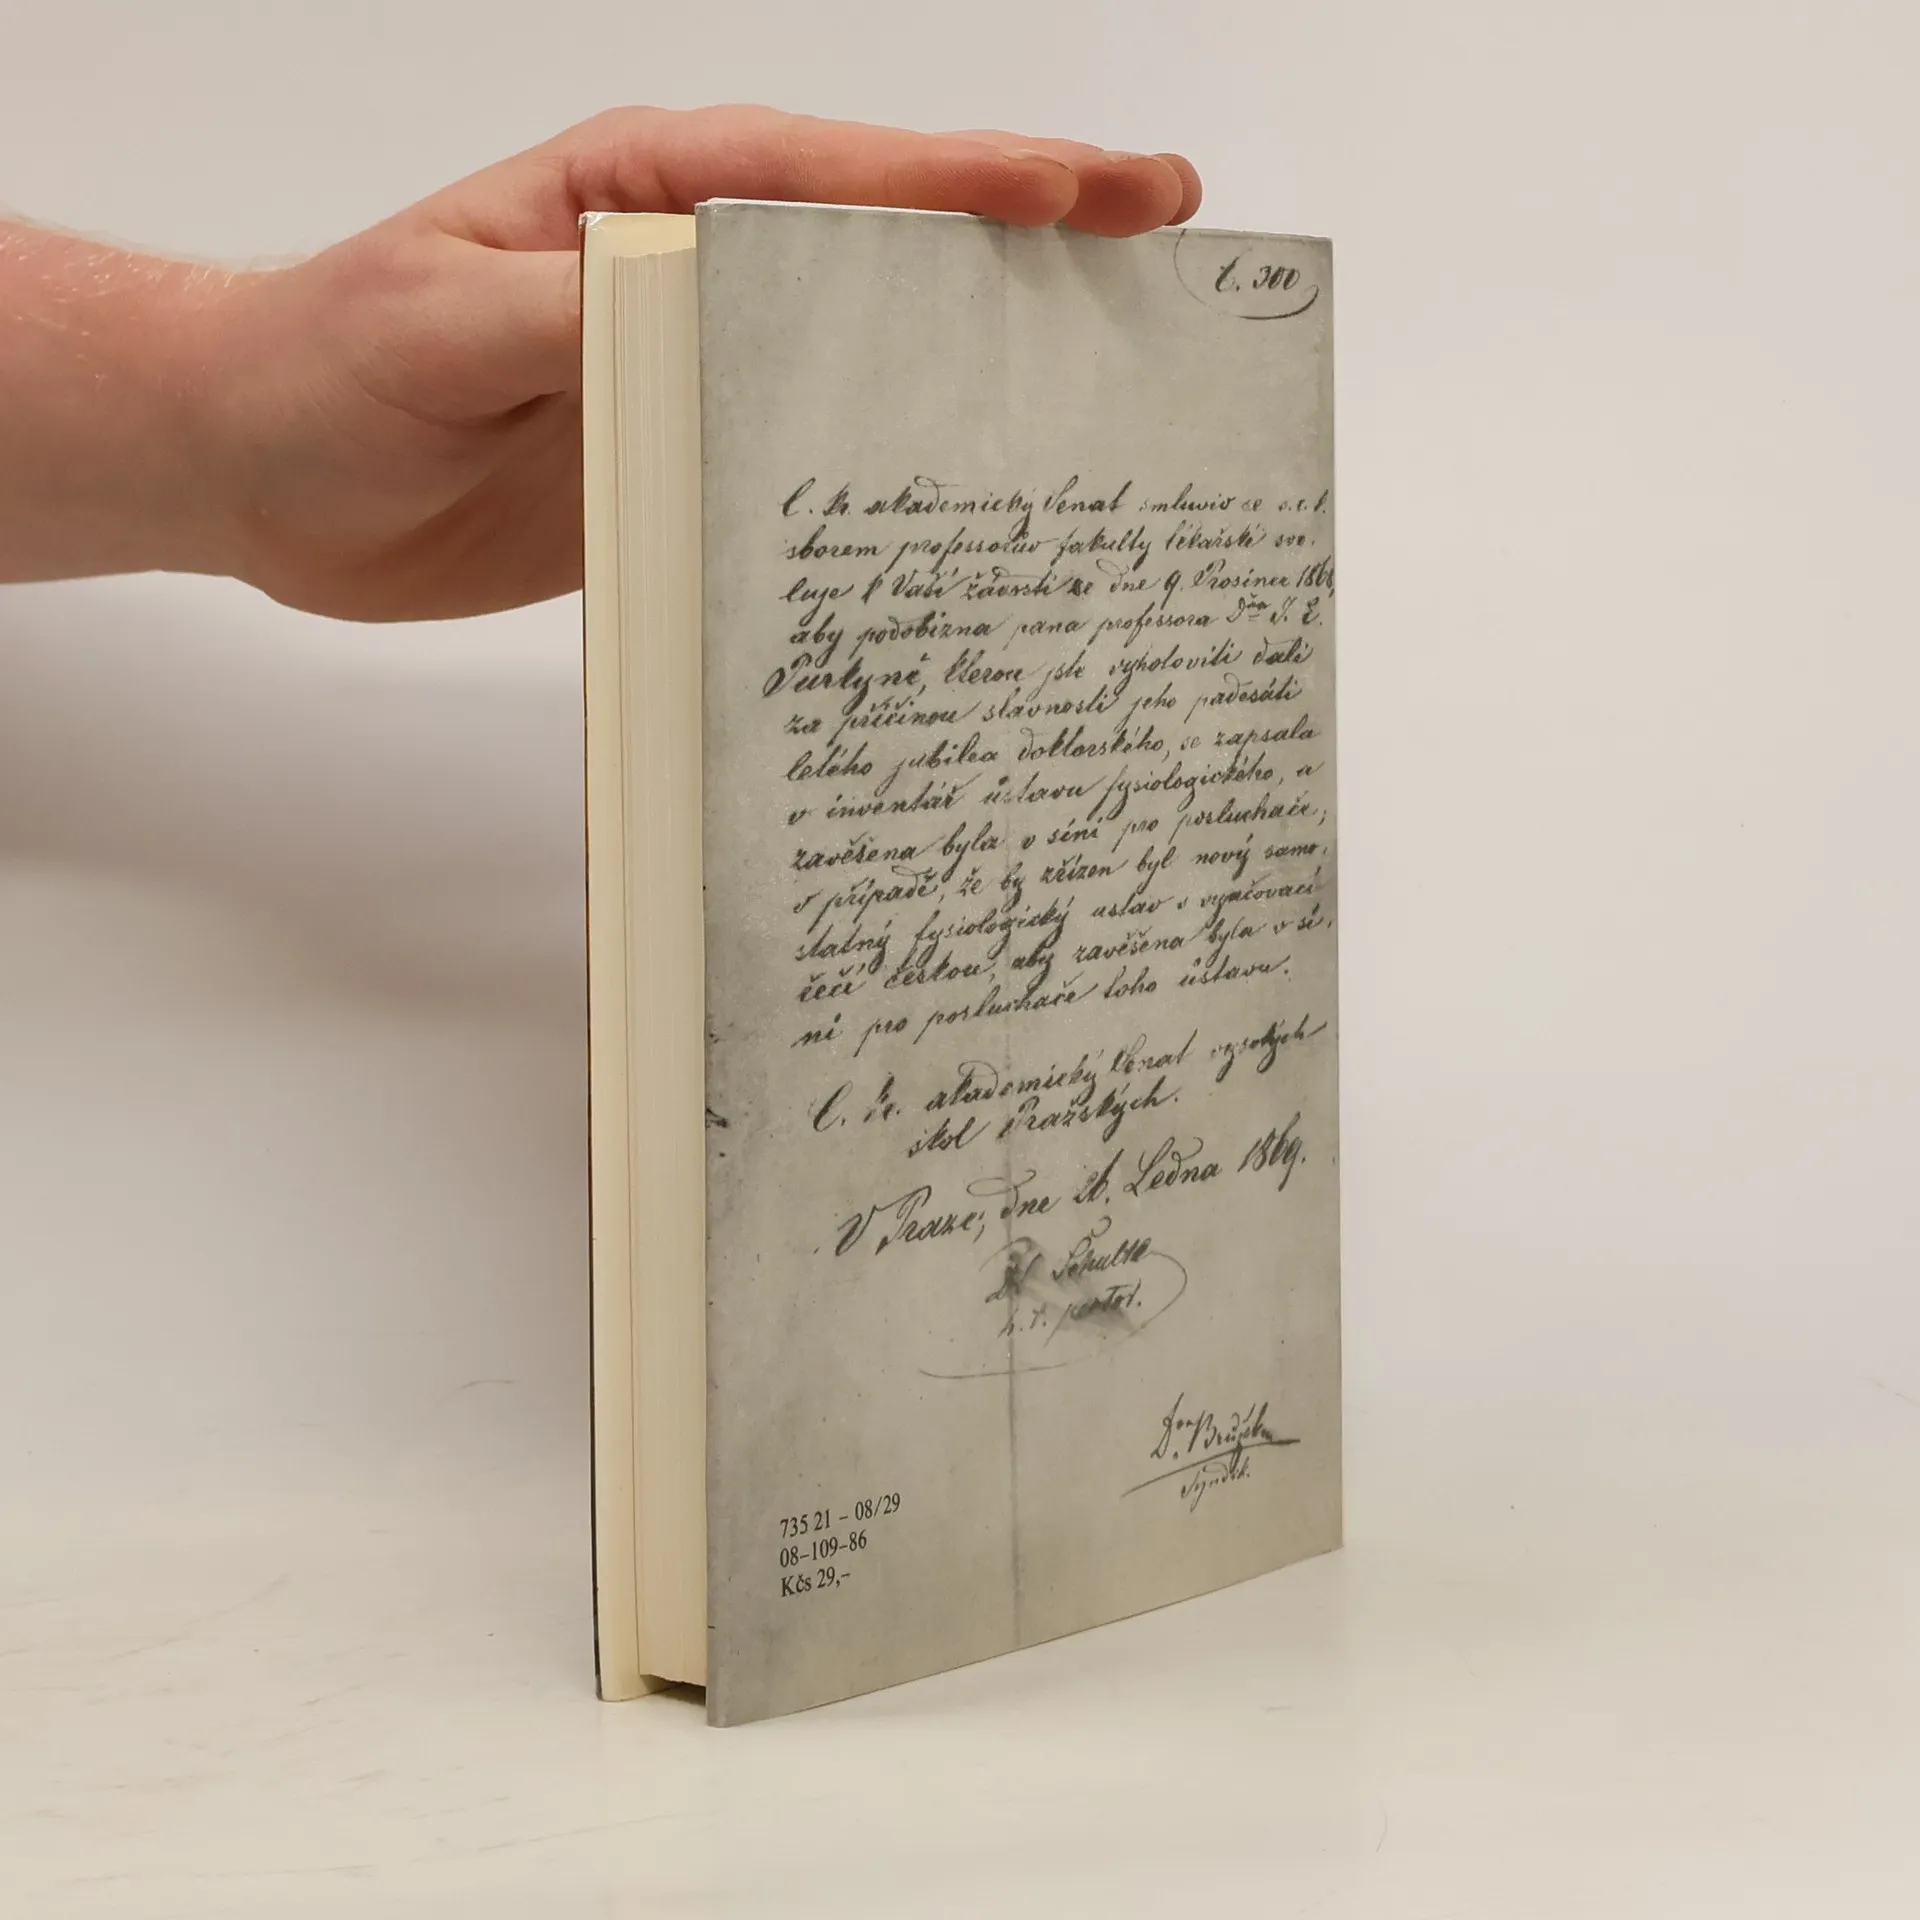 č. 300
C. k. akademický Senat smluviv se s. c. k.
sborem professorův fakulty lékařské svo-
luje k Vaší žádosti ze dne 9. Prosince 1868,
aby podobizna pana professora Dra J. E.
Purkyně, kterou jste vyhotoviti dali
za příčinou slavnosti jeho padesáti
letého jubilea doktorského, se zapsala
v inventář ústavu fysiologického, a
zavěšena byla v síni pro posluchače;
v případě, že by zřízen byl nový samo-
statný fysiologický ustav s vyučovací
řečí českou, aby zavěšena byla v sí-
ni pro posluchače toho ústavu.
C. k. akademický Senat vysokých
škol Pražských.
V Praze, dne 26. Ledna 1869.
Dr
Syndik.
735 21 – 08/29
08–109–86
Kčs 29,–